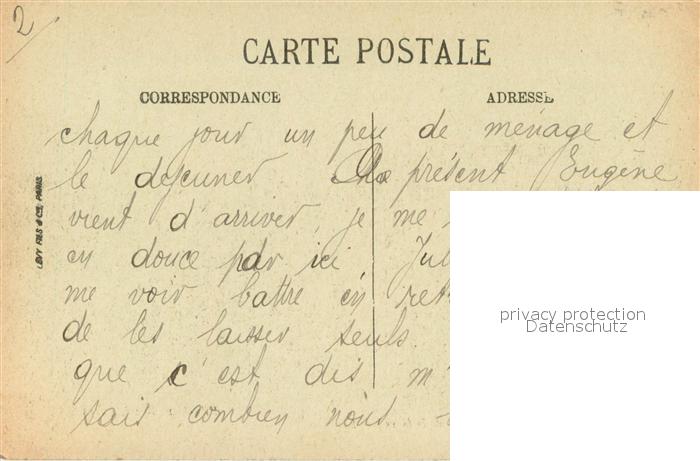 2
CARTE POSTALE
CORRESPONDANCE
ADRESSE
chaque jour un peu de ménage et
le dejeuner présent Eugène
vient d'arriver, je me
en douce par ici Jul
me voir battre en ret
de les laisser seuls.
que c'est dis m'
sais combien nous
LÉVY FILS & CIE, PARIS
privacy protection
Datenschutz